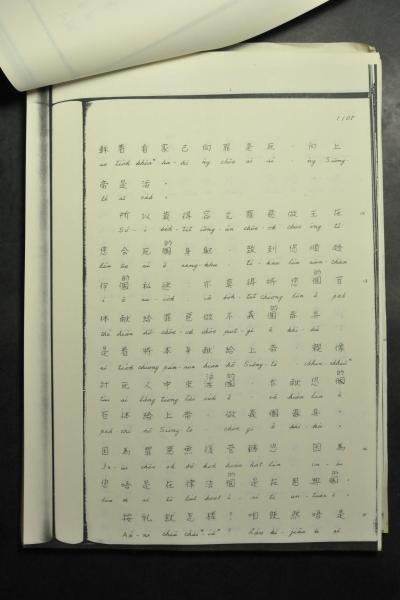 1108
鮮着看家己向罪是死，向上
iā tio̍h khòaⁿ ka-kī ǹg chōe sī sí, ǹg Siōng-
帝是活。
tè sī oa̍h.
所以莫得容允罪惡做王在
Só͘-í bo̍h-tit
恁會死的個身軀，致到恁順趁
lín ōe sí ê seng-khu, tì-kàu lín sūn-thàn
伊個私慾。亦莫得將恁的個百
i ê su-io̍k. iā bo̍h-tit chiong lín ê pah
體献給罪惡做不義的個器具。
thé hiàn hō͘ chōe-ok chòe put-gī ê khì-kū.
是着將本身献給上帝，親像
sī tio̍h chiong pún-sin hiàn hō͘ Siōng-tè, chhin-chhiūⁿ
對死人中來活的個。亦献恁的個
tùi sí lâng tiong lâi oa̍h ê. iā hiàn lín ê
百体給上帝，做義個器具。
pah thé hō͘ Siōng-tè, chòe gī ê khì-kū.
因為罪惡無復管轄恁，因為
In-ūi chōe-ok bô koh koán-hat lín, in-ūi
恁唔是在律法的個，是在恩典的個。
lín m̄ sī tī lu̍t-hoat ê, sī tī un-tián ê.
按礼就怎樣？咱既然唔是
án-ni chiū chái-iūⁿ? lán kì-jiân m̄ sī